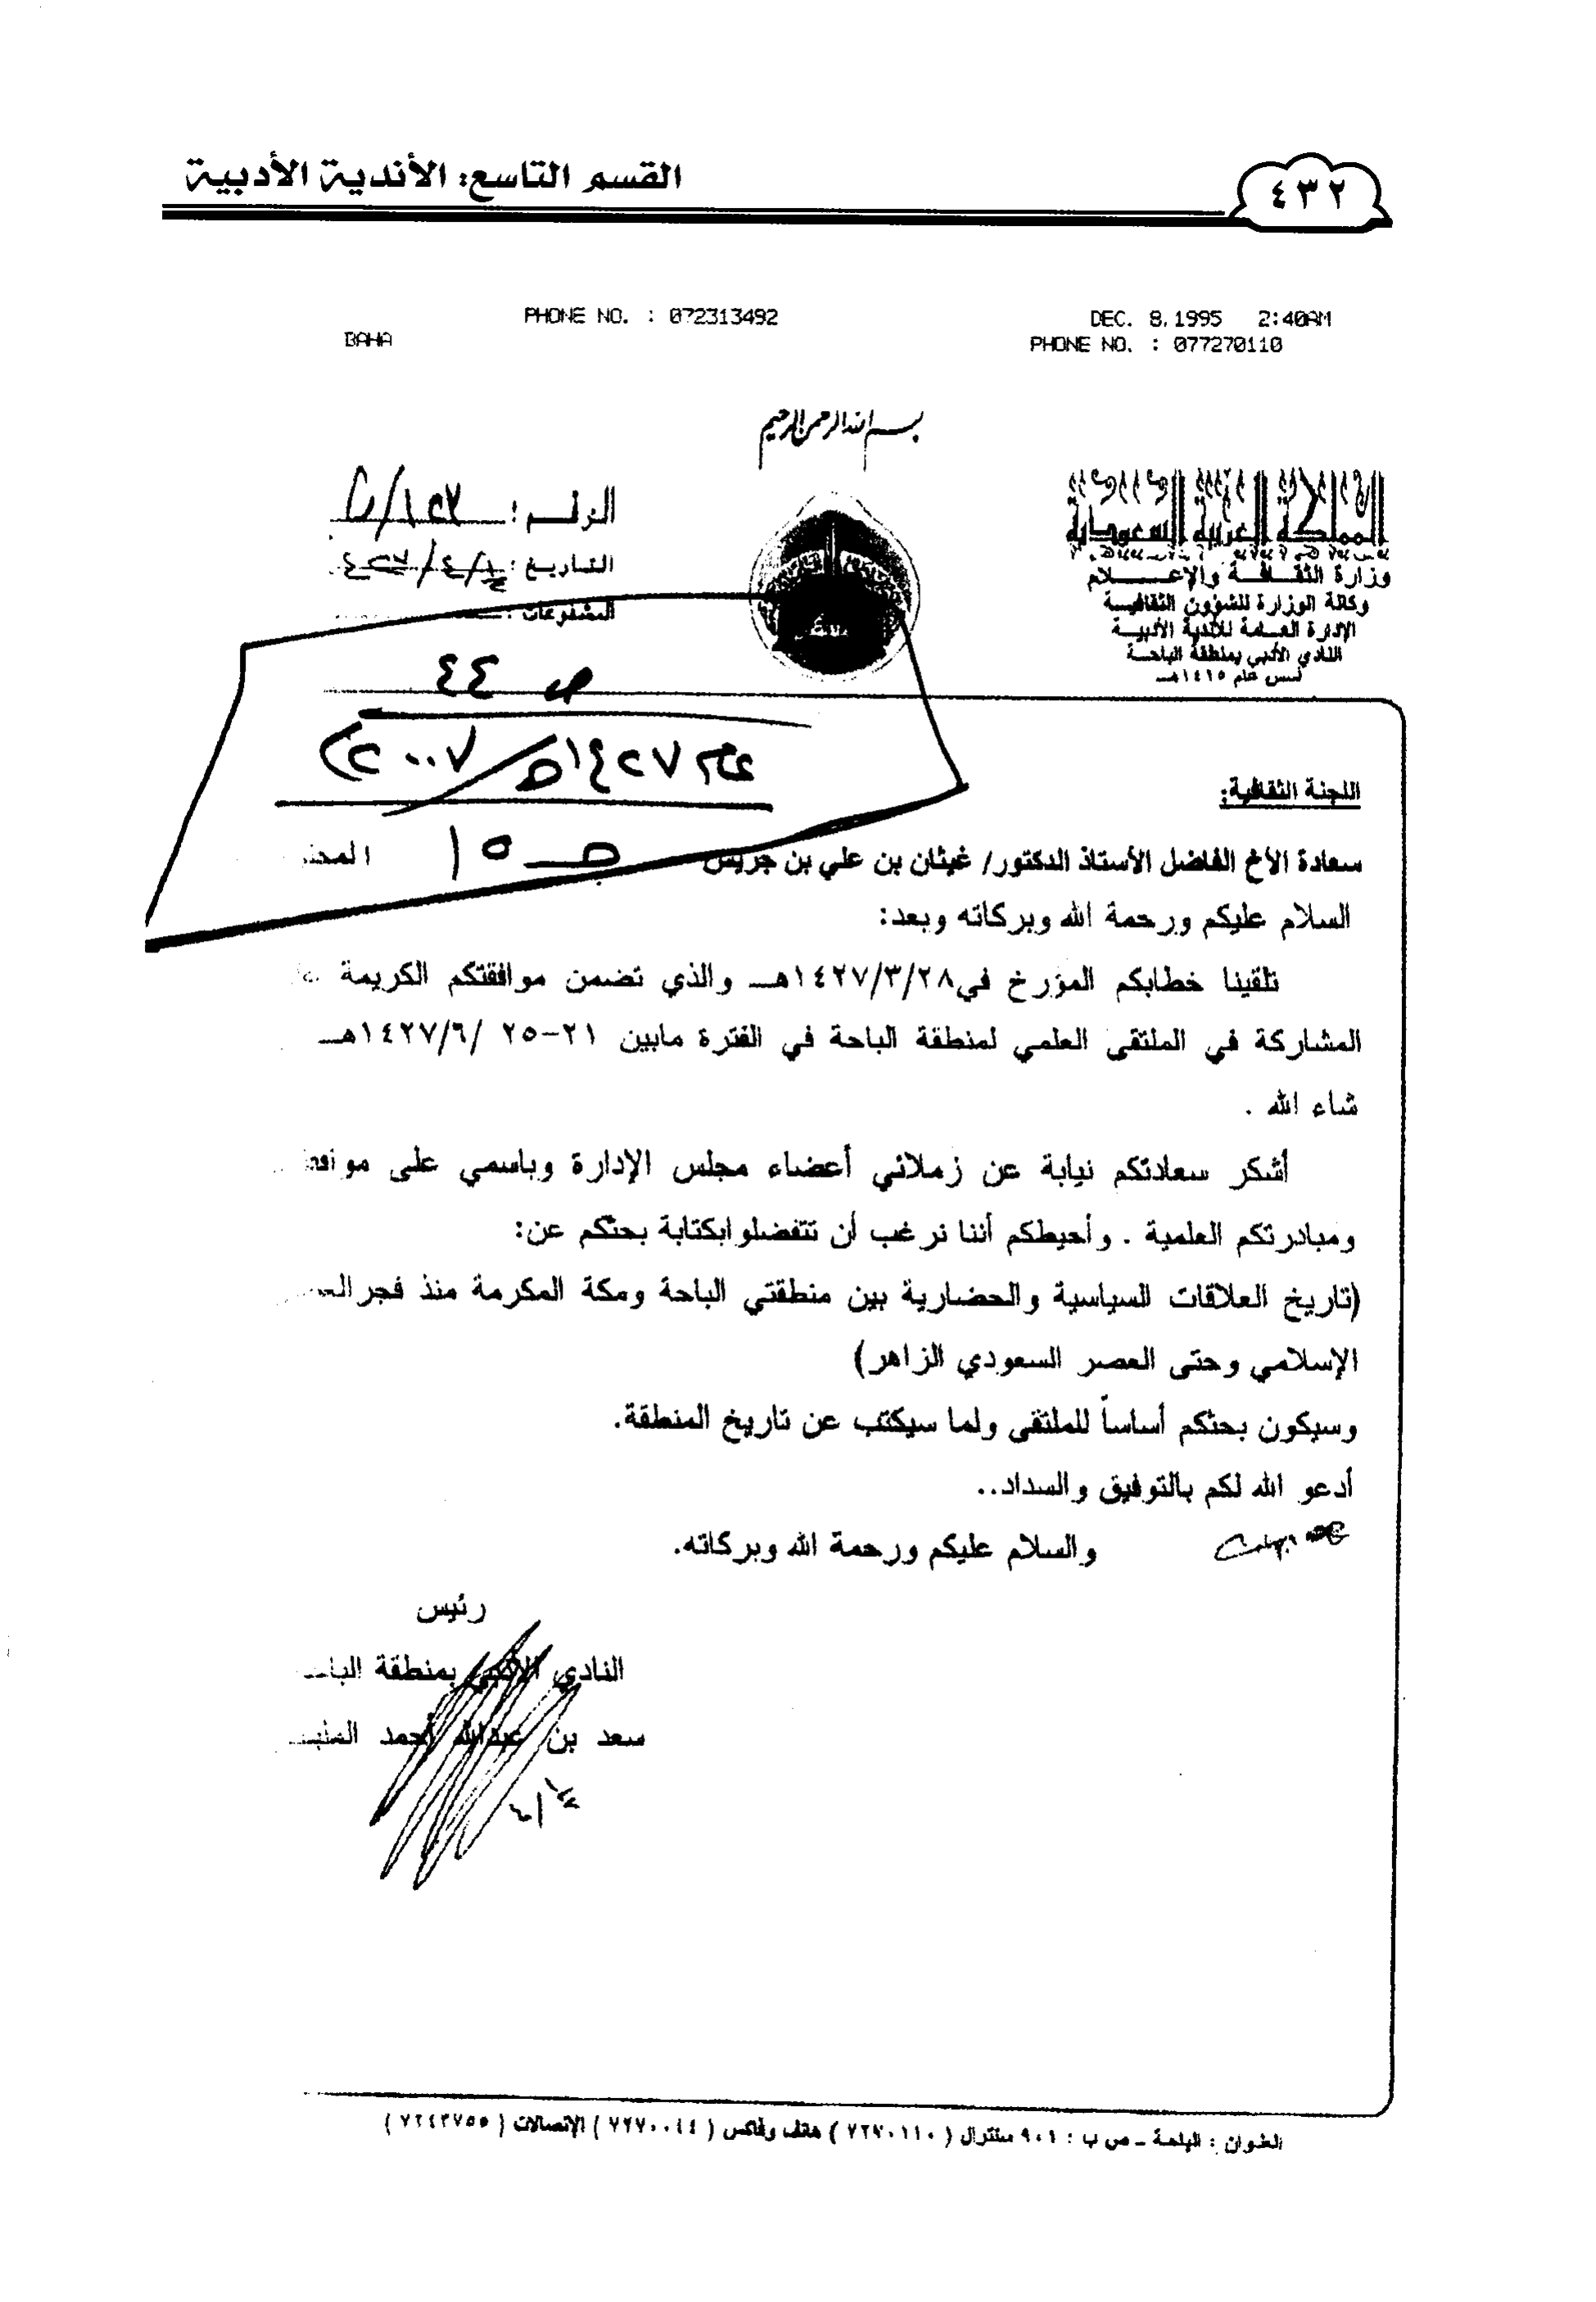 القسم التاسع: الأندية الأدبية
٤٣٢
PHONE NO. : 072313492
DEC. 8.1995 2:40AM
BAHA
PHONE NO. : 077270110
بسم الله الرحمن الرحيم
المملكة العربية السعودية
وزارة الثقافة والإعلام
وكالة الوزارة للشؤون الثقافية
الإدارة العامة للأندية الأدبية
النادي الأدبي بمنطقة الباحة
أسس عام ١٤١٥هـ
الرقم :
التاريخ :
المشفوعات :
ص ٤٤
عام ١٤٢٧هـ/٢٠٠٧م
جـ ١٥
اللجنة الثقافية:
سعادة الأخ الفاضل الأستاذ الدكتور/ غيثان بن علي بن جريس
السلام عليكم ورحمة الله وبركاته وبعد:
تلقينا خطابكم المؤرخ في١٤٢٧/٣/٢٨هـ والذي تضمن موافقتكم الكريمة
المشاركة في الملتقى العلمي لمنطقة الباحة في الفترة مابين ٢١-٢٥ /١٤٢٧/٦هـ
شاء الله .
أشكر سعادتكم نيابة عن زملائي أعضاء مجلس الإدارة وباسمي على
ومبادرتكم العلمية . وأحيطكم أننا نرغب أن تتفضلوابكتابة بحثكم عن:
(تاريخ العلاقات السياسية والحضارية بين منطقتي الباحة ومكة المكرمة منذ فجر
الإسلامي وحتى العصر السعودي الزاهر)
وسيكون بحثكم أساساً للملتقى ولما سيكتب عن تاريخ المنطقة.
أدعو الله لكم بالتوفيق والسداد..
والسلام عليكم ورحمة الله وبركاته.
رئيس
النادي الأدبي بمنطقة
سعد بن عبدالله أحمد
العنوان : الباحة – ص ب : ٩٠١ سنترال ( ٧٢٧٠١١٠ ) هاتف وفاكس ( ٧٢٧٠٠٤٤ ) الإتصالات ( ٧٢٤٣٧٥٥ )